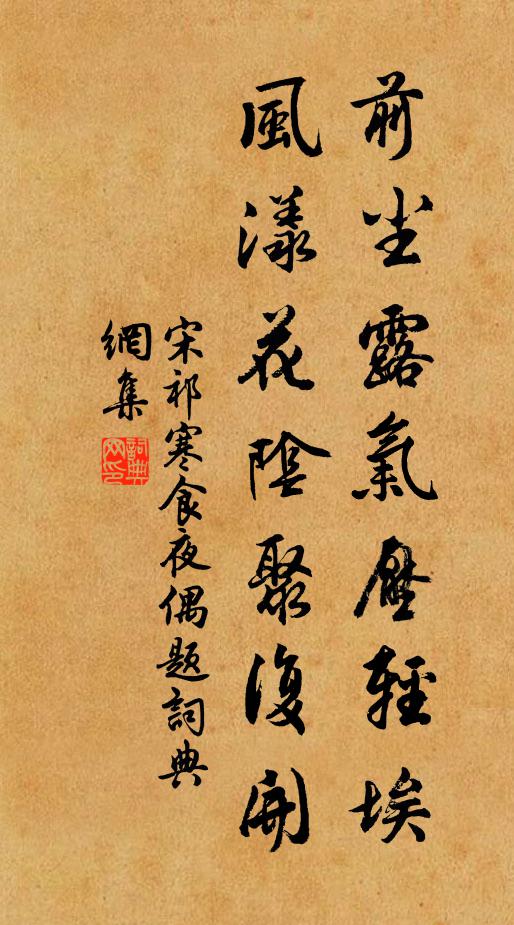 前尘露氣壓輕埃
風漾花陰聚復開
宋祁寒食夜偶題詞典
網集
詞典网印